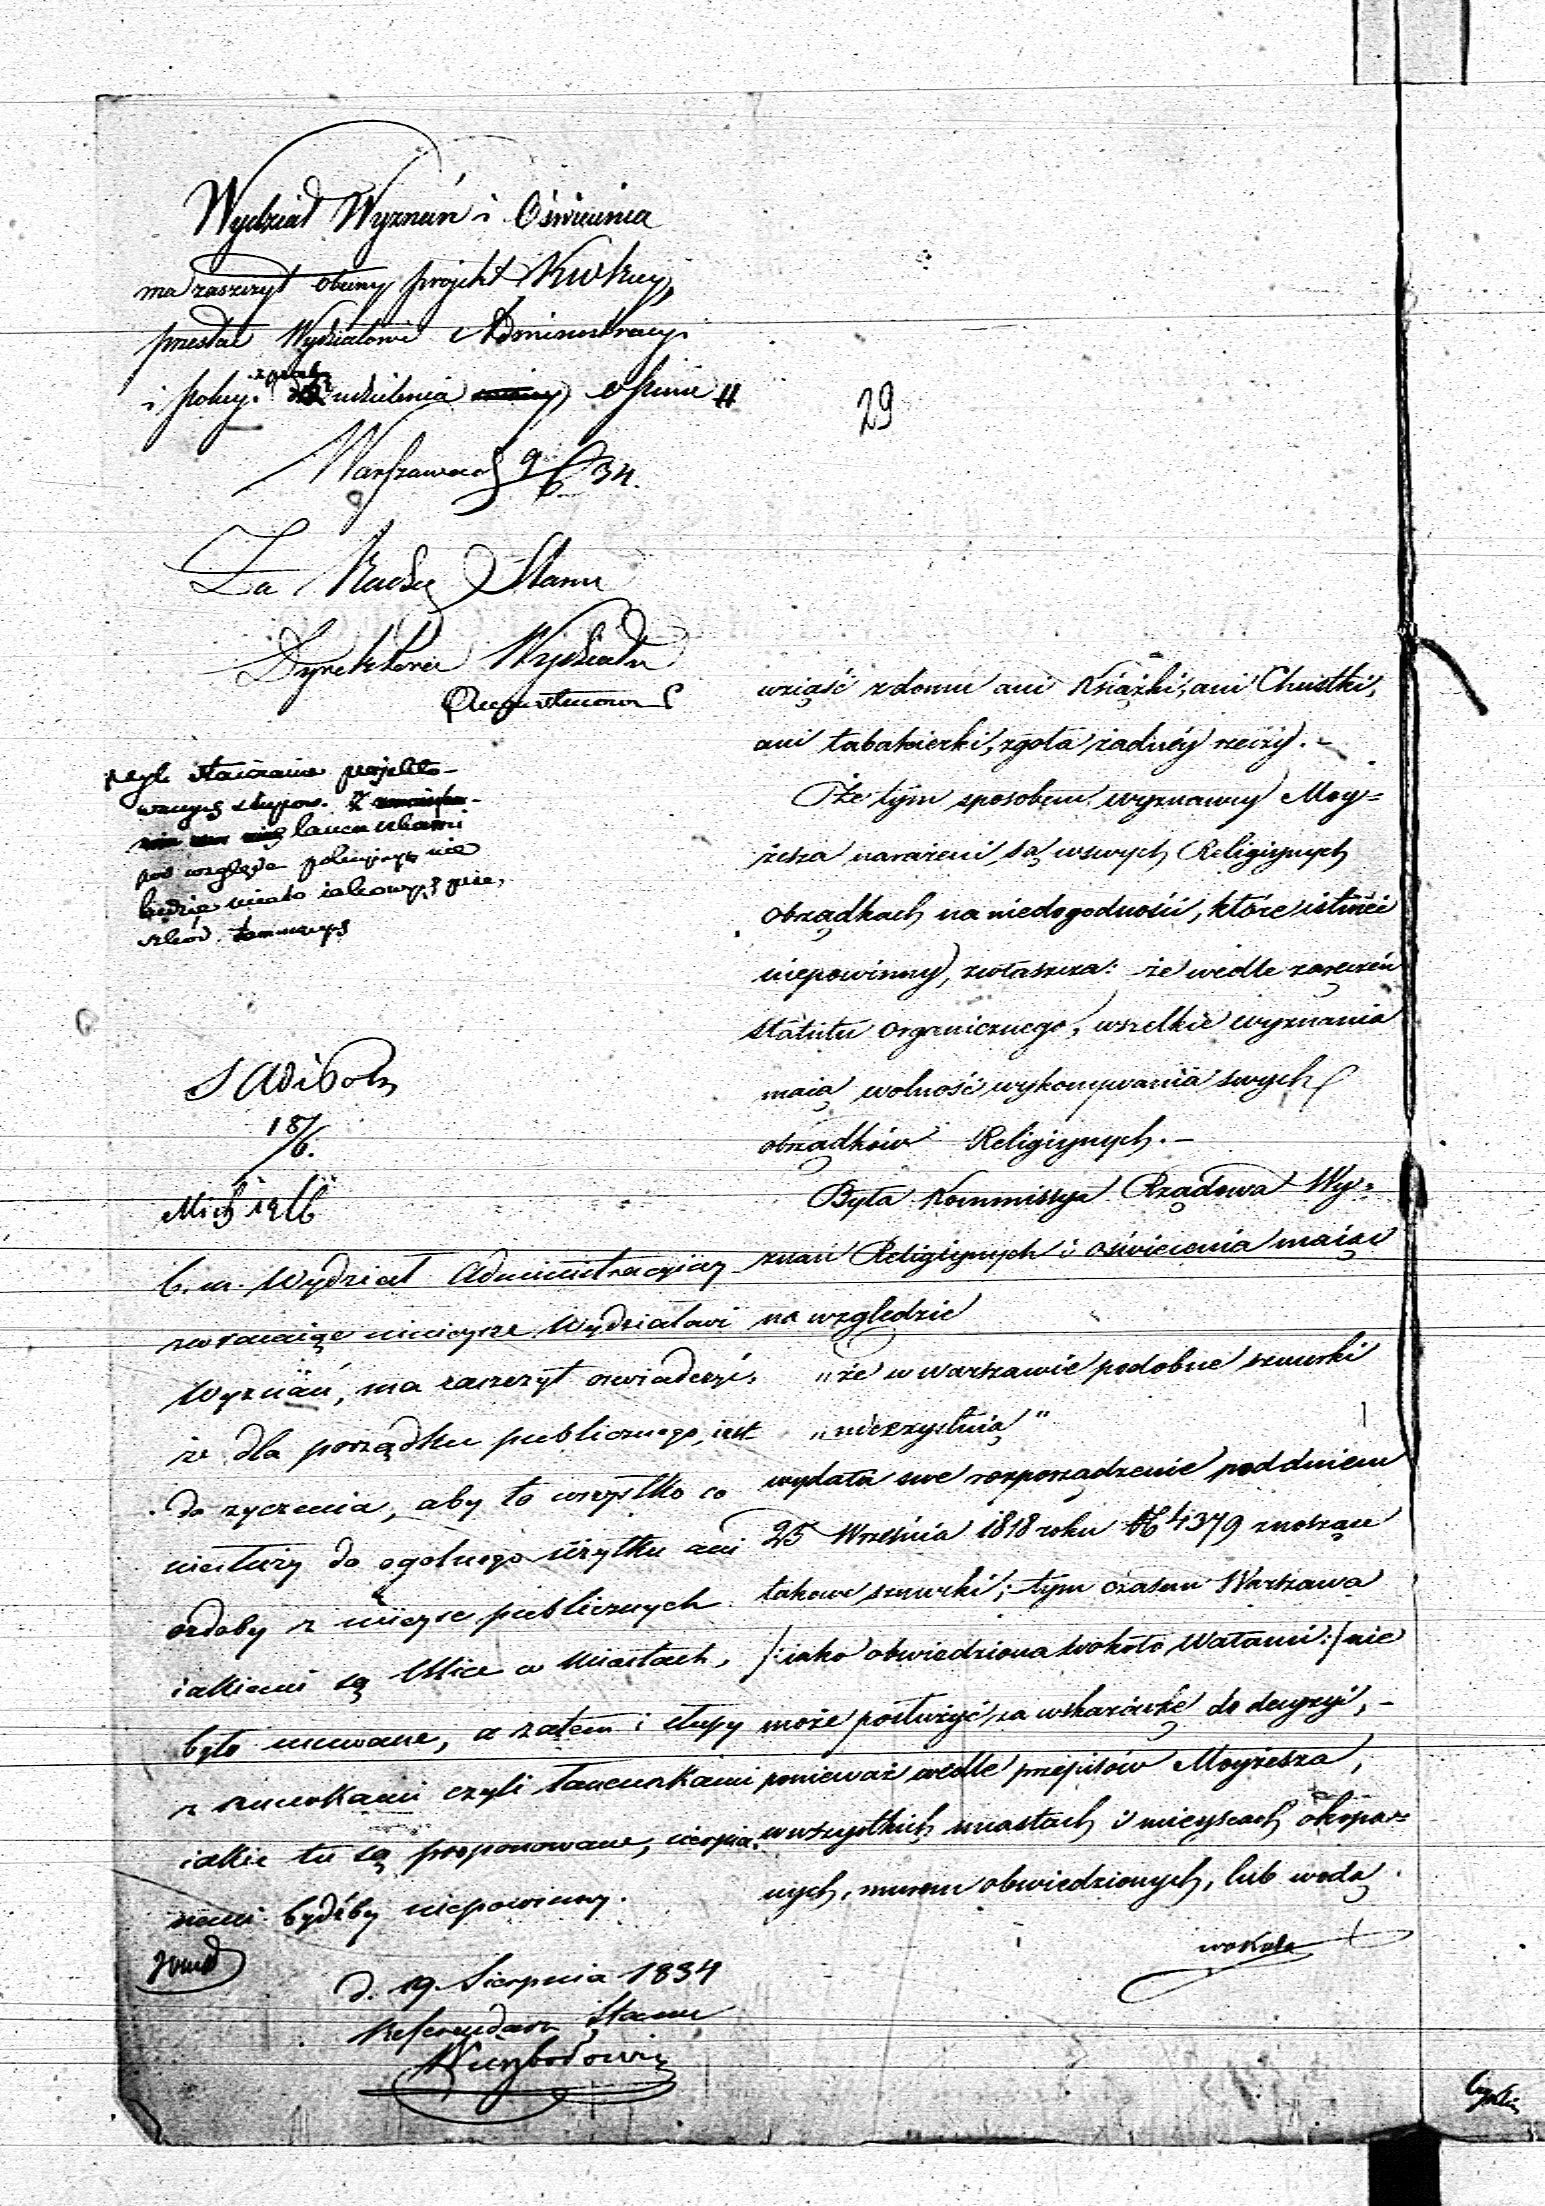 Wydział Wyznań i Oświecenia
ma zaszczyt obecny projekt
przesłać Wydziałowi Administracyi
i policyi udzielenia opinii
29
Warszawa d 9/6 34.
Za Radcę Stanu
Dyrektora Wydziału
czyli stawianie projekto-
wanych słupów z
łancuszkami
pod względem policyjnym nie
będzie miało iakowych prze,
szkód
18/6.
b. m. Wydział Administracyjny
zwracaiąc niniejsze Wydziałowi
Wyznań, ma zaszczyt oświadczyć,
że dla porządku publicznego, iest
do życzenia, aby to wszystko co
niesłuży do ogolnego użytku ani
ozdoby z mieysc publicznych
iakiemi są Ulice w Miastach,
było usuwane, a zatem i słupy
z sznurkami czyli łancuszkami
iakie tu są proponowane, cierpia-
nemi bydźby niepowinny.
d. 19 Sierpnia 1834
Referendarz Stanu
wziąść z domu ani Książki, ani Chustki,
ani tabakierki, zgoła żadnéy rzeczy. –
Że tym sposobem wyznawcy Moy=
żesza narażeni są w swych Religiynych
obrządkach na niedogodności, które istnieć
niepowinny, zwłaszcza: że wedle zaręczeń
statutu organicznego, wszelkie wyznania
maią wolność wykonywania swych
obrządków Religiynych. –
Była Kommissya Rządowa Wy=
znań Religiynych i oświecenia maiąc
na względzie
„że w Warszawie podobne sznurki
„nieexystuią"
wydała swe rozporządzenie pod dniem
25 Września 1818 roku № 4379 znosząu
takowe sznurki; tym czasem Warszawa
/:iako obwiedziona wokoło Wałami:/ nie
może posłużyć za wskazówkę do decyzyi, –
ponieważ wedle przepisów Moyżesza,
w wszystkich miastach i mieyscach okopa=
nych, murem obwiedzionych, lub wodą
wokoło